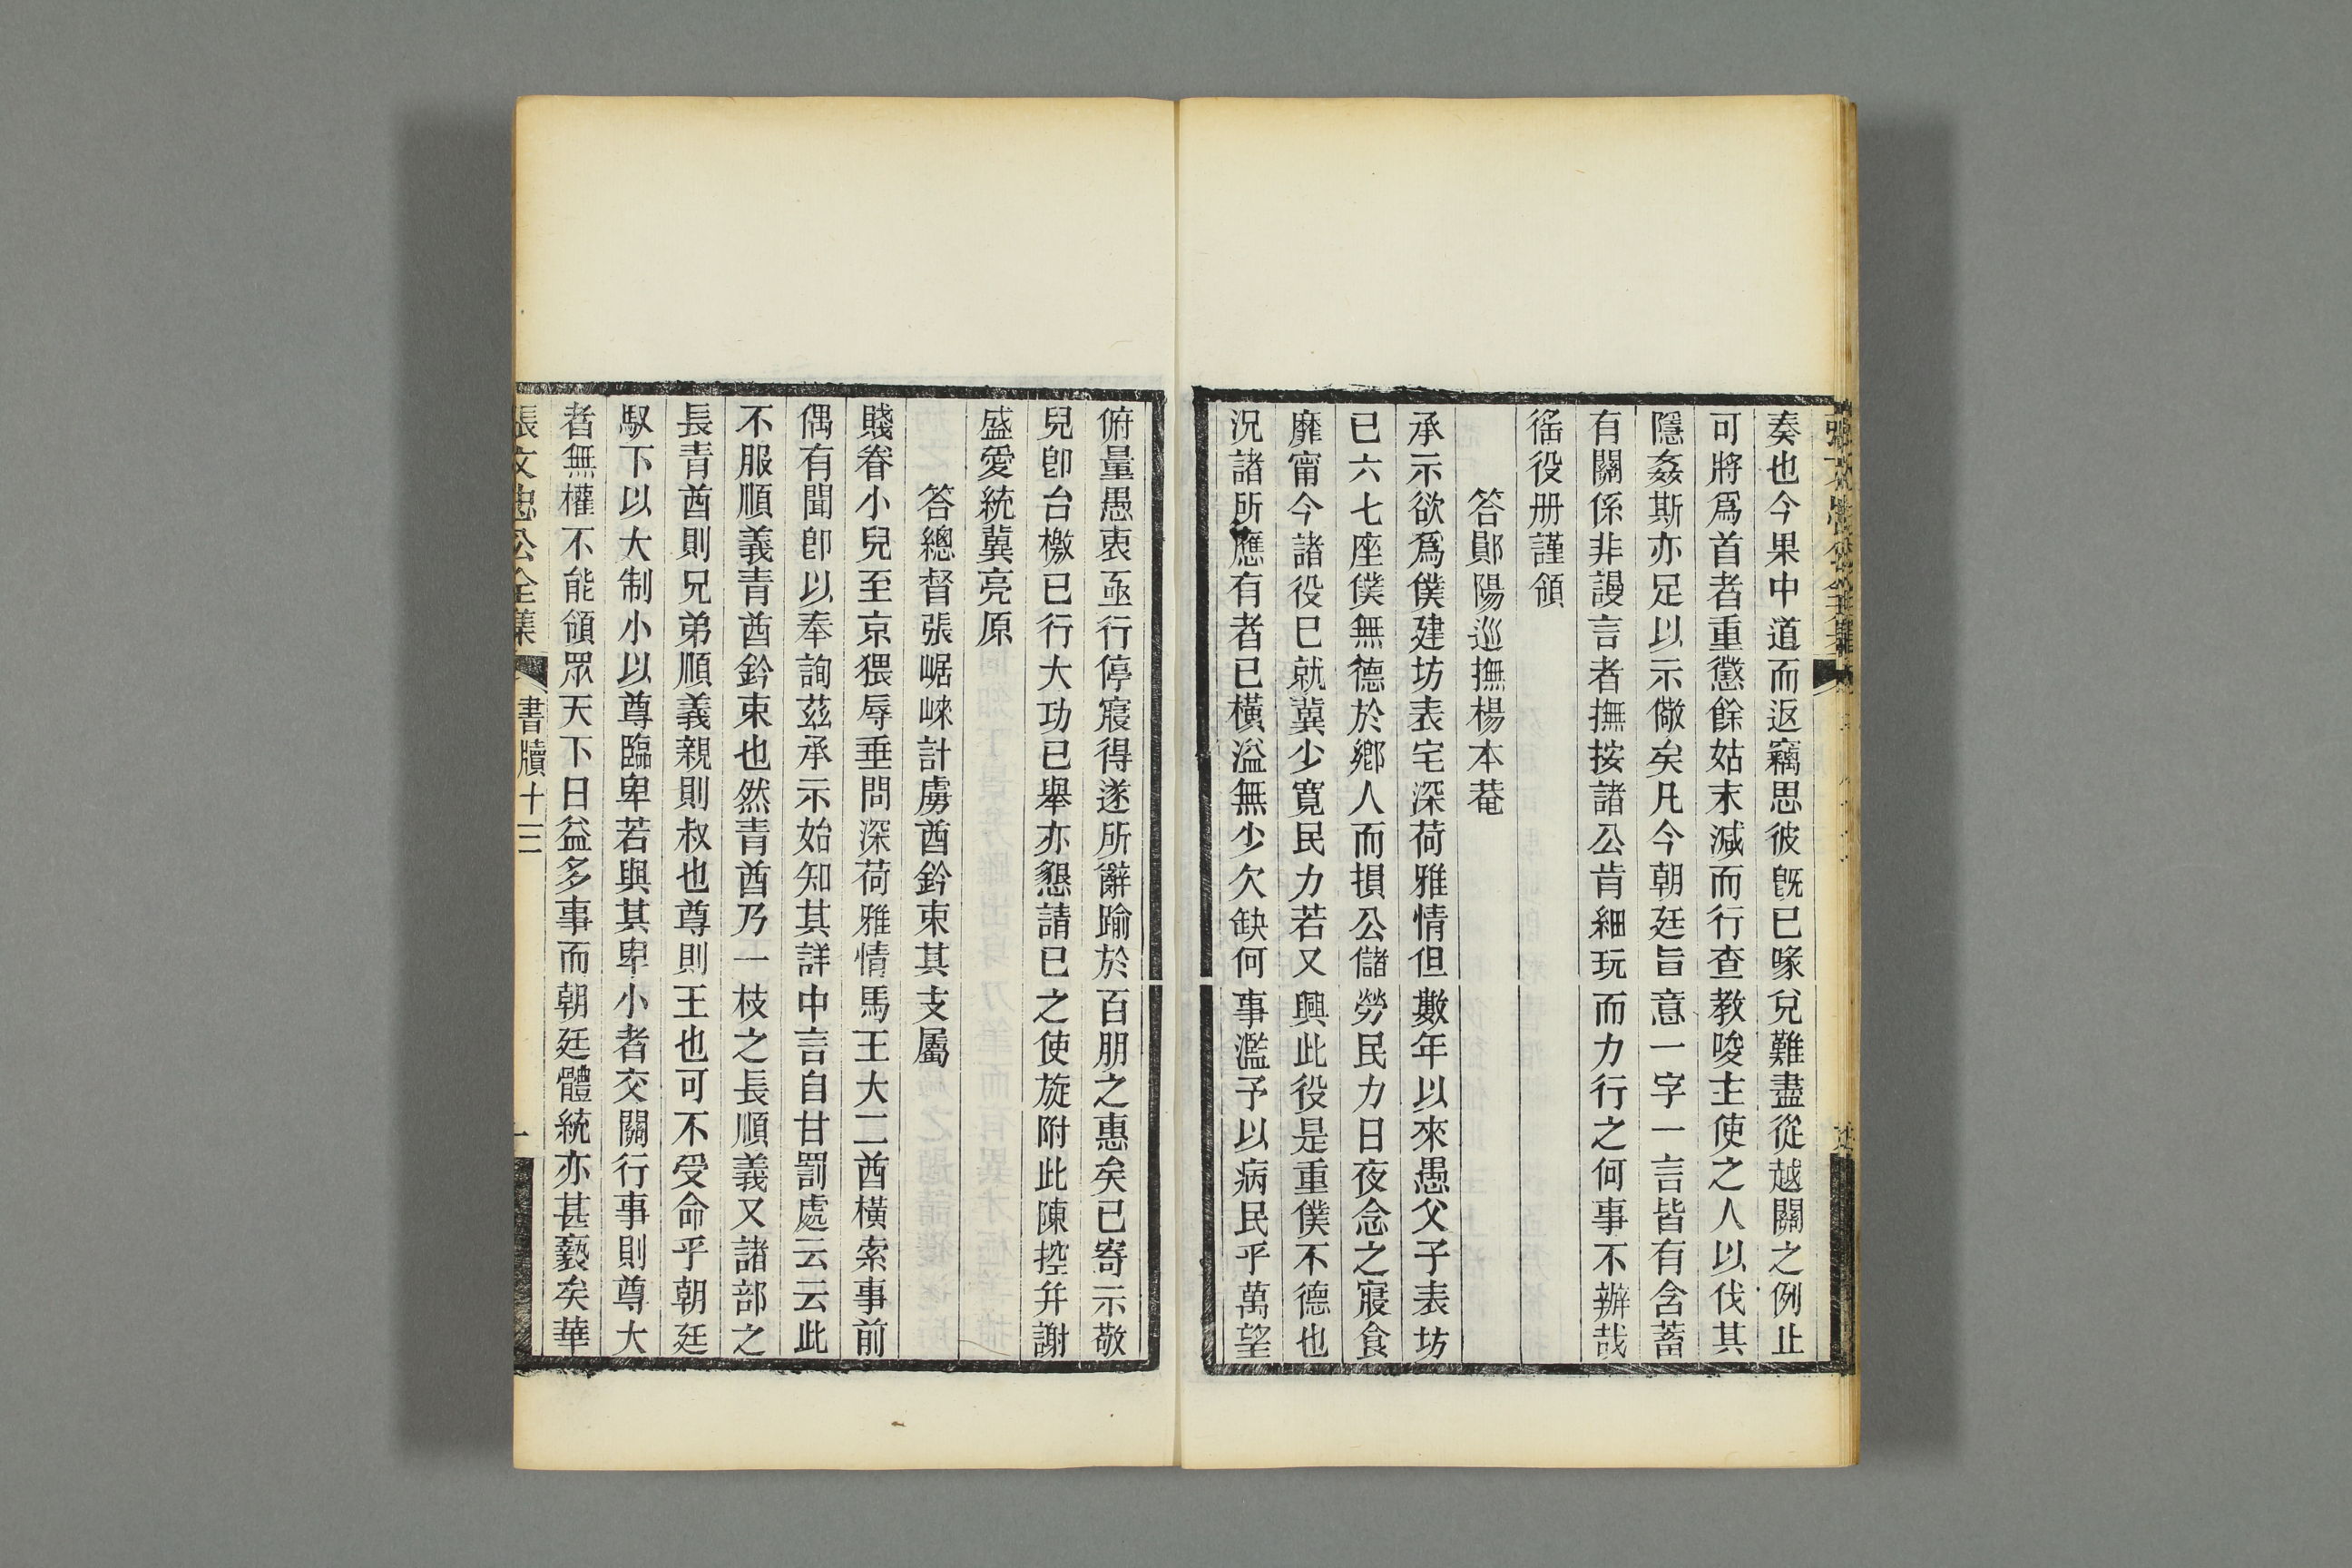 奏也今果中道而返竊思彼旣已喙兌難盡從越關之例止
可將爲首者重懲餘姑末減而行查教唆主使之人以伐其
隱姦斯亦足以示儆矣凡今朝廷旨意一字一言皆有含蓄
有關係非謾言者撫按諸公肯細玩而力行之何事不辦哉
徭役册謹領
答鄖陽巡撫楊本菴
承示欲爲僕建坊表宅深荷雅情但數年以來愚父子表坊
已六七座僕無德於鄕人而損公儲勞民力日夜念之寢食
靡甯今諸役已就冀少寬民力若又興此役是重僕不德也
況諸所應有者已橫溢無少欠缺何事濫予以病民乎萬望
俯量愚衷亟行停寢得遂所辭踰於百朋之惠矣已寄示敬
兒卽台檄已行大功已舉亦懇請已之使旋附此陳控幷謝
盛愛統冀亮原
答總督張崌崍計虜酋鈐束其支屬
賤眷小兒至京猥辱垂問深荷雅情馬王大二酋橫索事前
偶有聞卽以奉詢茲承示始知其詳中言自甘罰處云云此
不服順義青酋鈐束也然青酋乃一枝之長順義又諸部之
長青酋則兄弟順義親則叔也尊則王也可不受命乎朝廷
馭下以大制小以尊臨卑若與其卑小者交關行事則尊大
者無權不能領眾天下日益多事而朝廷體統亦甚褻矣華
張文忠公全集 書牘十三